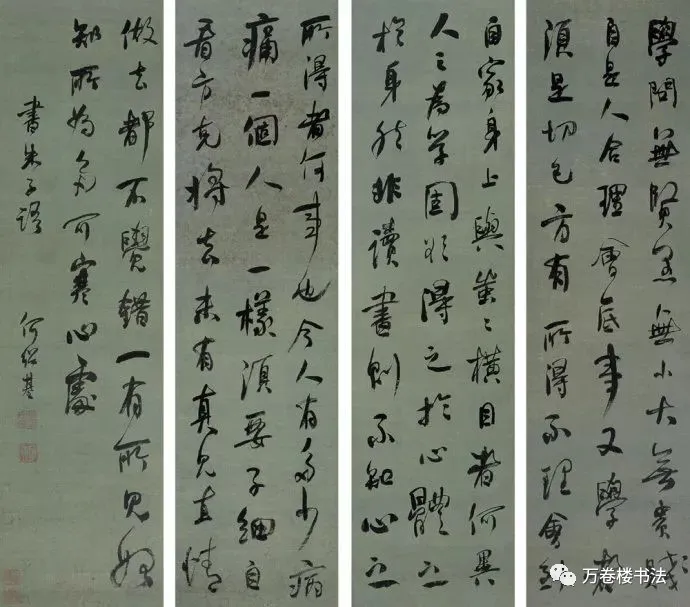 學問無賢愚無小大無貴賤
自是人合理會底事又學者
須是切己方有所得不理會
自家身上與蚩〻橫目者何異
人之為學固欲得之於心體之
於身然非讀書則不知心之
所得者何事也今人有多少病
痛一個人是一樣須要子細自
看方克將去未有真見直情
做去都不覺錯一有所見始
知所為多可寒心處
書朱子語
何紹基
万卷楼书法